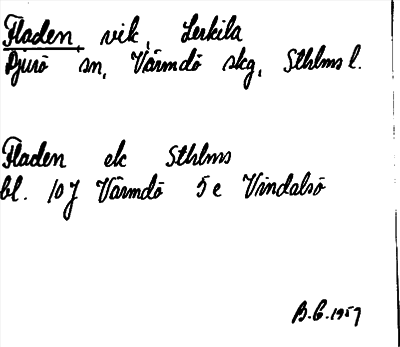 Fladen, vik, Lerkila
Djurö sn, Värmdö skg, Sthlms l.
Fladen ek Sthlms
bl. 10J Värmdö 5e Vindalsö
B.G. 1957